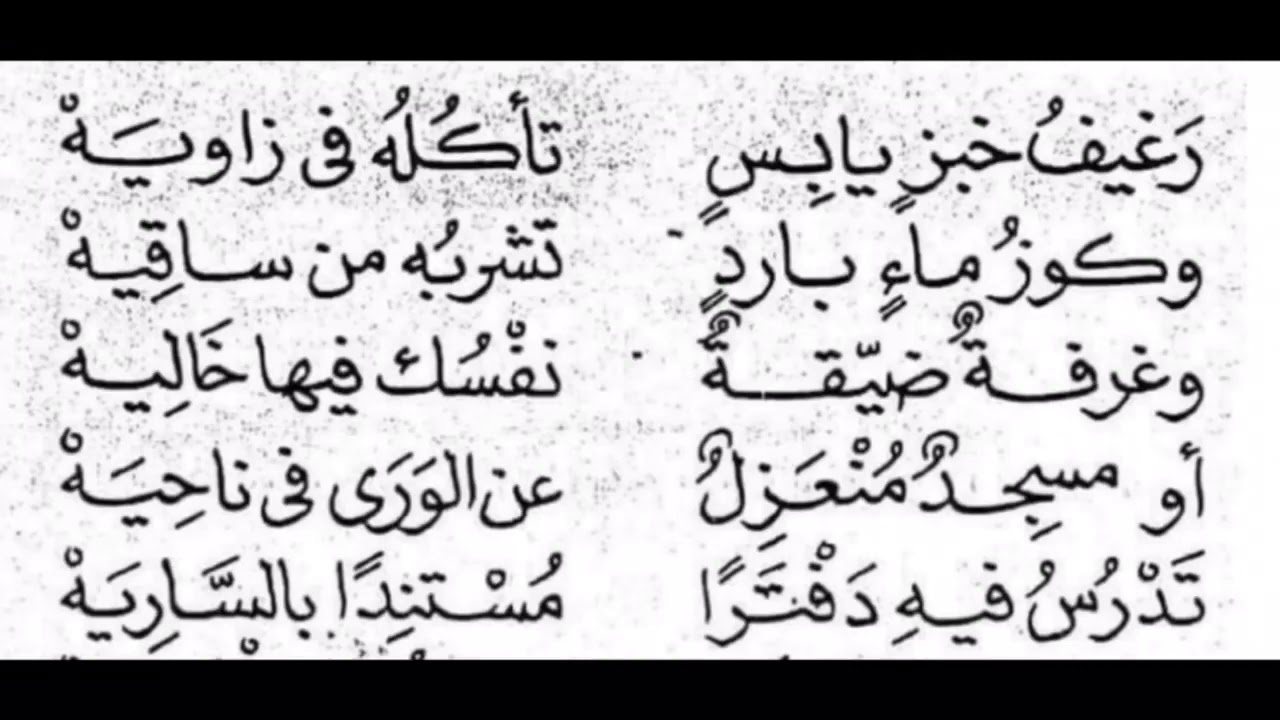 رَغيفُ خبزٍ يابِسٍ تأكُلُه فى زاويَهْ
وكوزُ ماءٍ باردٍ تشربُه من ساقِيهْ
وغرفةٌ ضيّقةٌ نفْسُك فيها خَالِيهْ
أو مسجِدٌ مُنْعَزِلٌ عن الوَرَى فى ناحِيَهْ
تَدْرُسُ فيهِ دَفْتَرًا مُسْتنِدًا بالسَّارِيَهْ